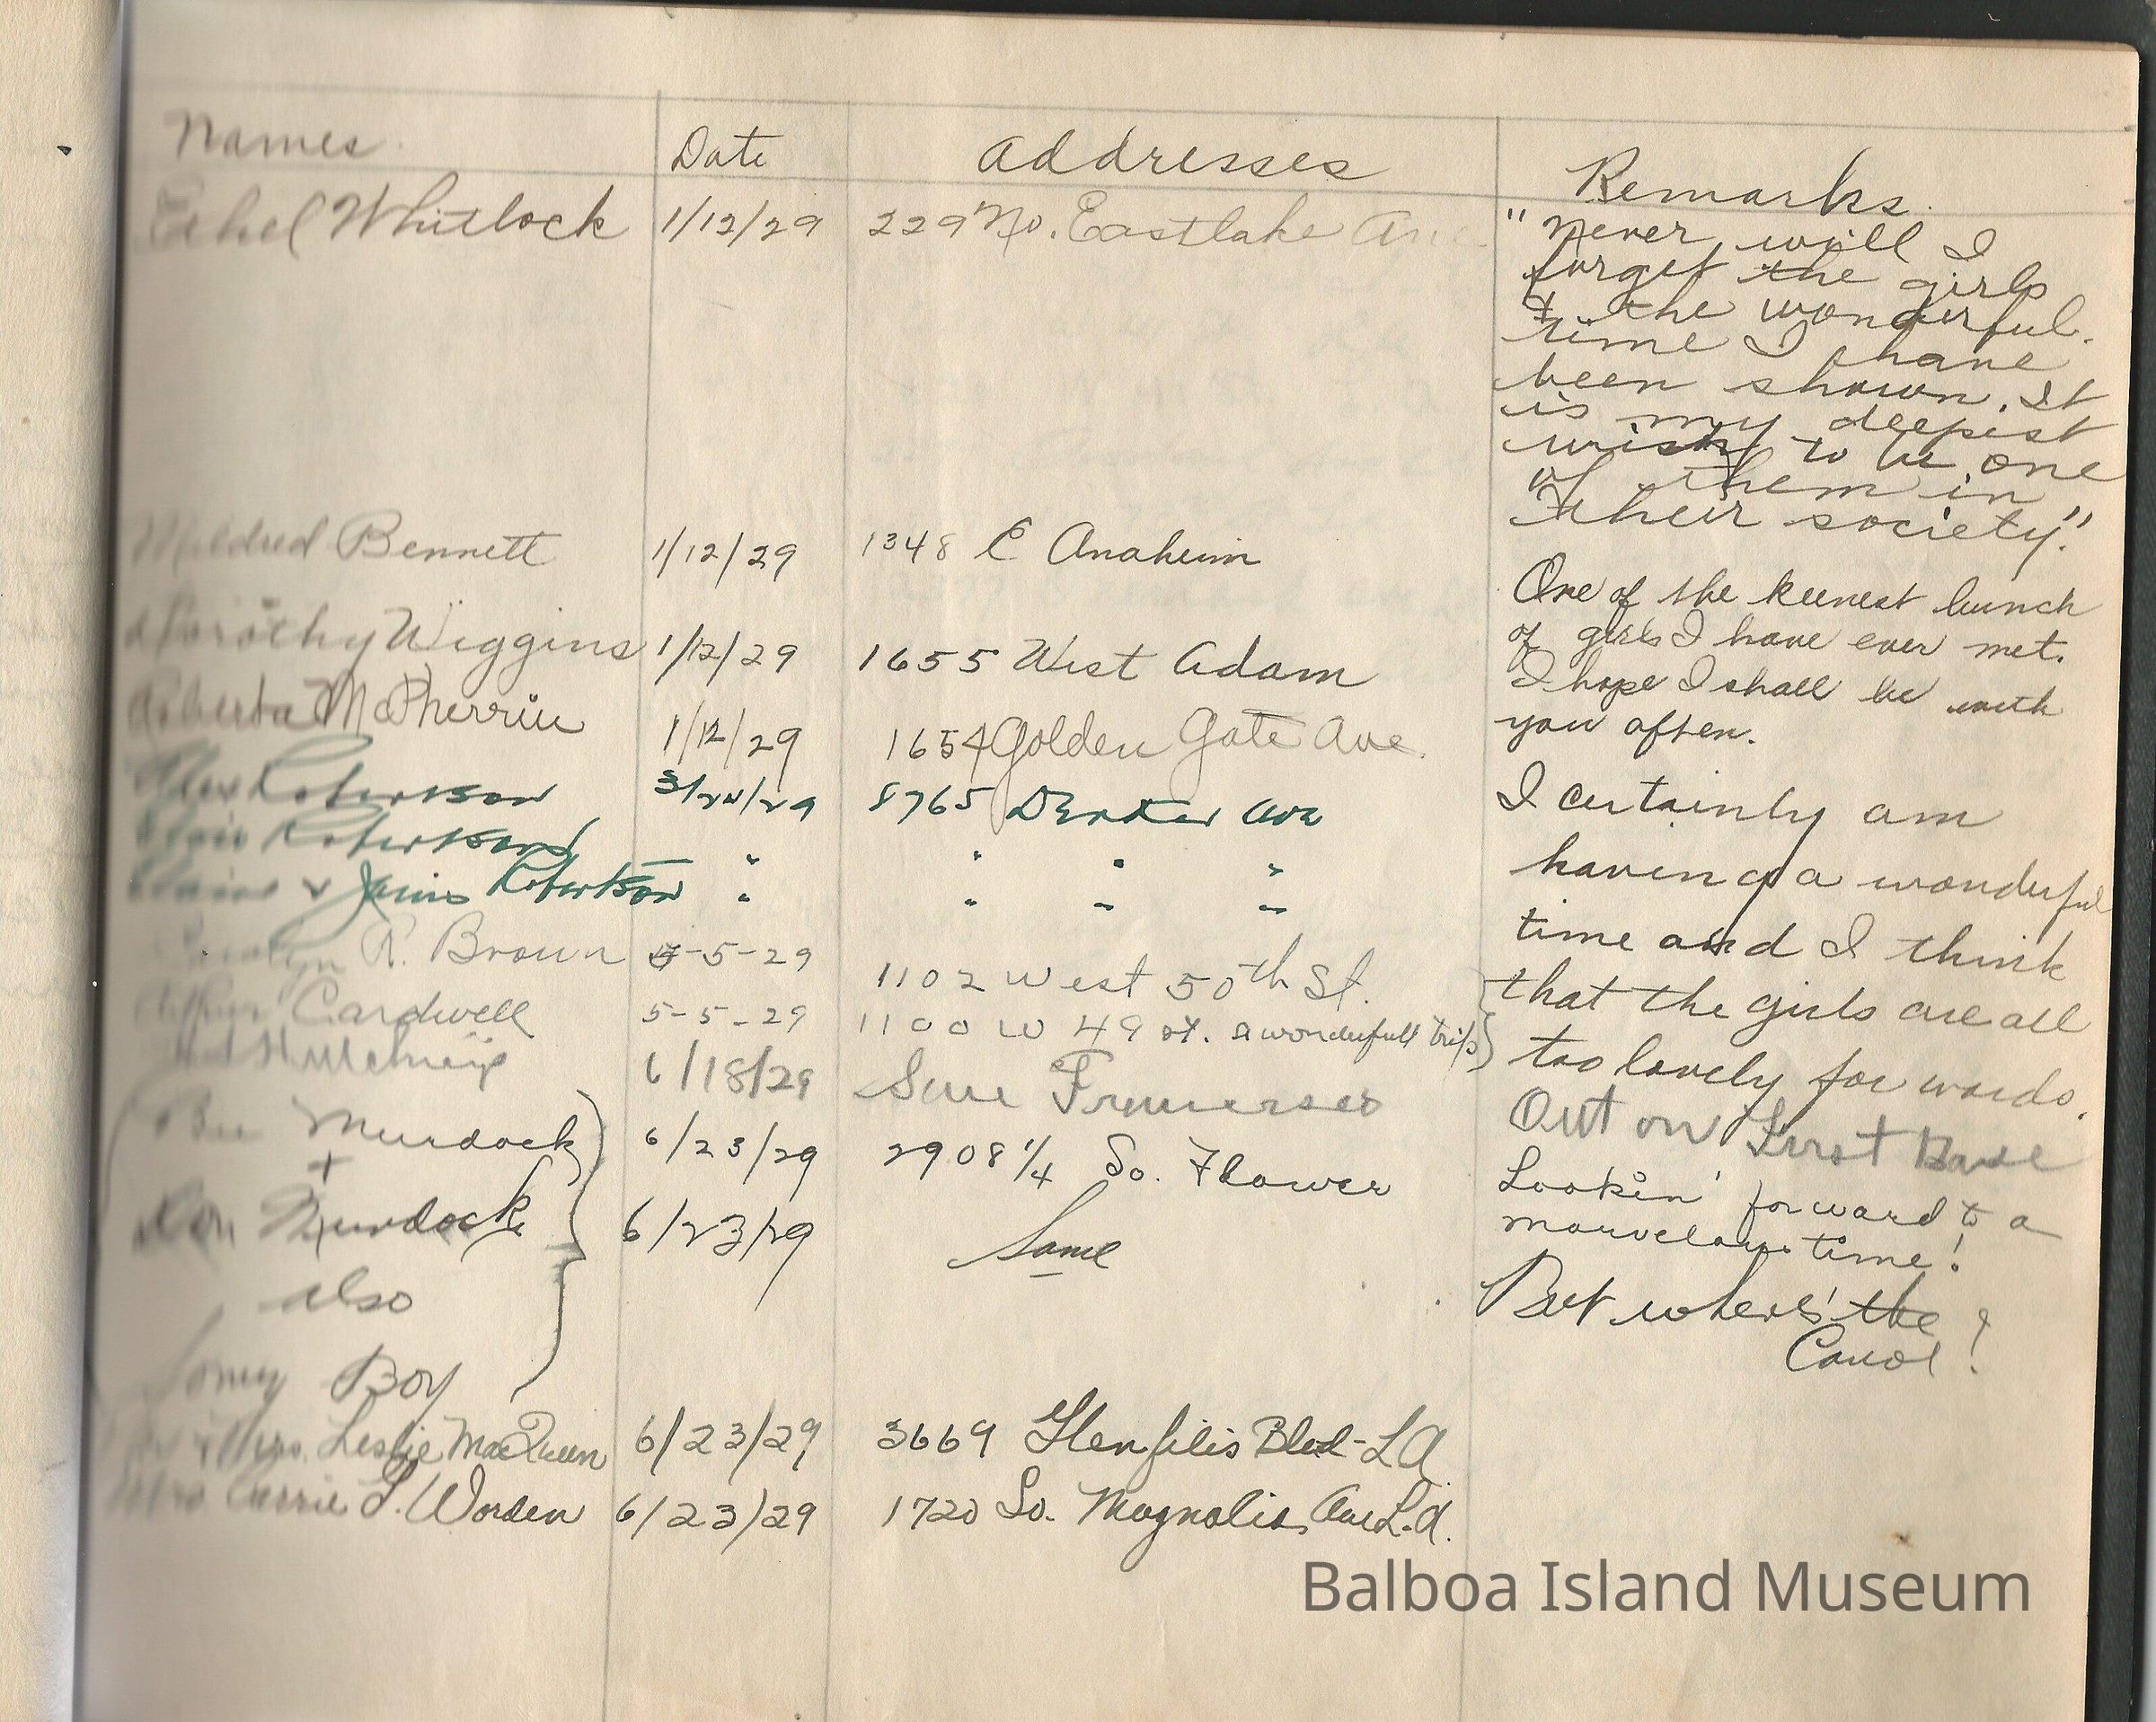 Names Date Addresses Remarks.
Ethel Whitlock 1/12/29 229 No. Eastlake Ave
"Never will I
forget the girls
& the wonderful
time I have
been shown. It
is my deepest
wish to be one
of them in
their society."
Mildred Bennett 1/12/29 1348 E Anaheim
One of the keenest bunch
of girls I have ever met.
Dorothy Wiggins 1/12/29 1655 West Adam
I hope I shall be with
you often.
Roberta McPherrin 1/12/29 1654 Golden Gate Ave.
I certainly am
having a wonderful
time and I think
that the girls are all
too lovely for words.
Robertson 3/24/29 8765 Denker Ave
Robertson " " " "
& Janis Robertson " " " "
R. Brown 5-5-29 1102 West 50th St.
Cardwell 5-5-29 1100 W 49 st. a wonderfull trip
6/18/29 San Francisco Out on First Base
Bee Murdock 6/23/29 2908 1/4 So. Flower
Lookin' forward to a
marvelous time!
+
Don Murdock 6/23/29 Same
But where's the
Carol!
also
Sonny Boy
Mrs. Leslie MacQueen 6/23/29 3669 Glenfelis Blvd - LA
Mrs Carrie L. Worden 6/23/29 1720 So. Magnolia Ave L.A.
Balboa Island Museum